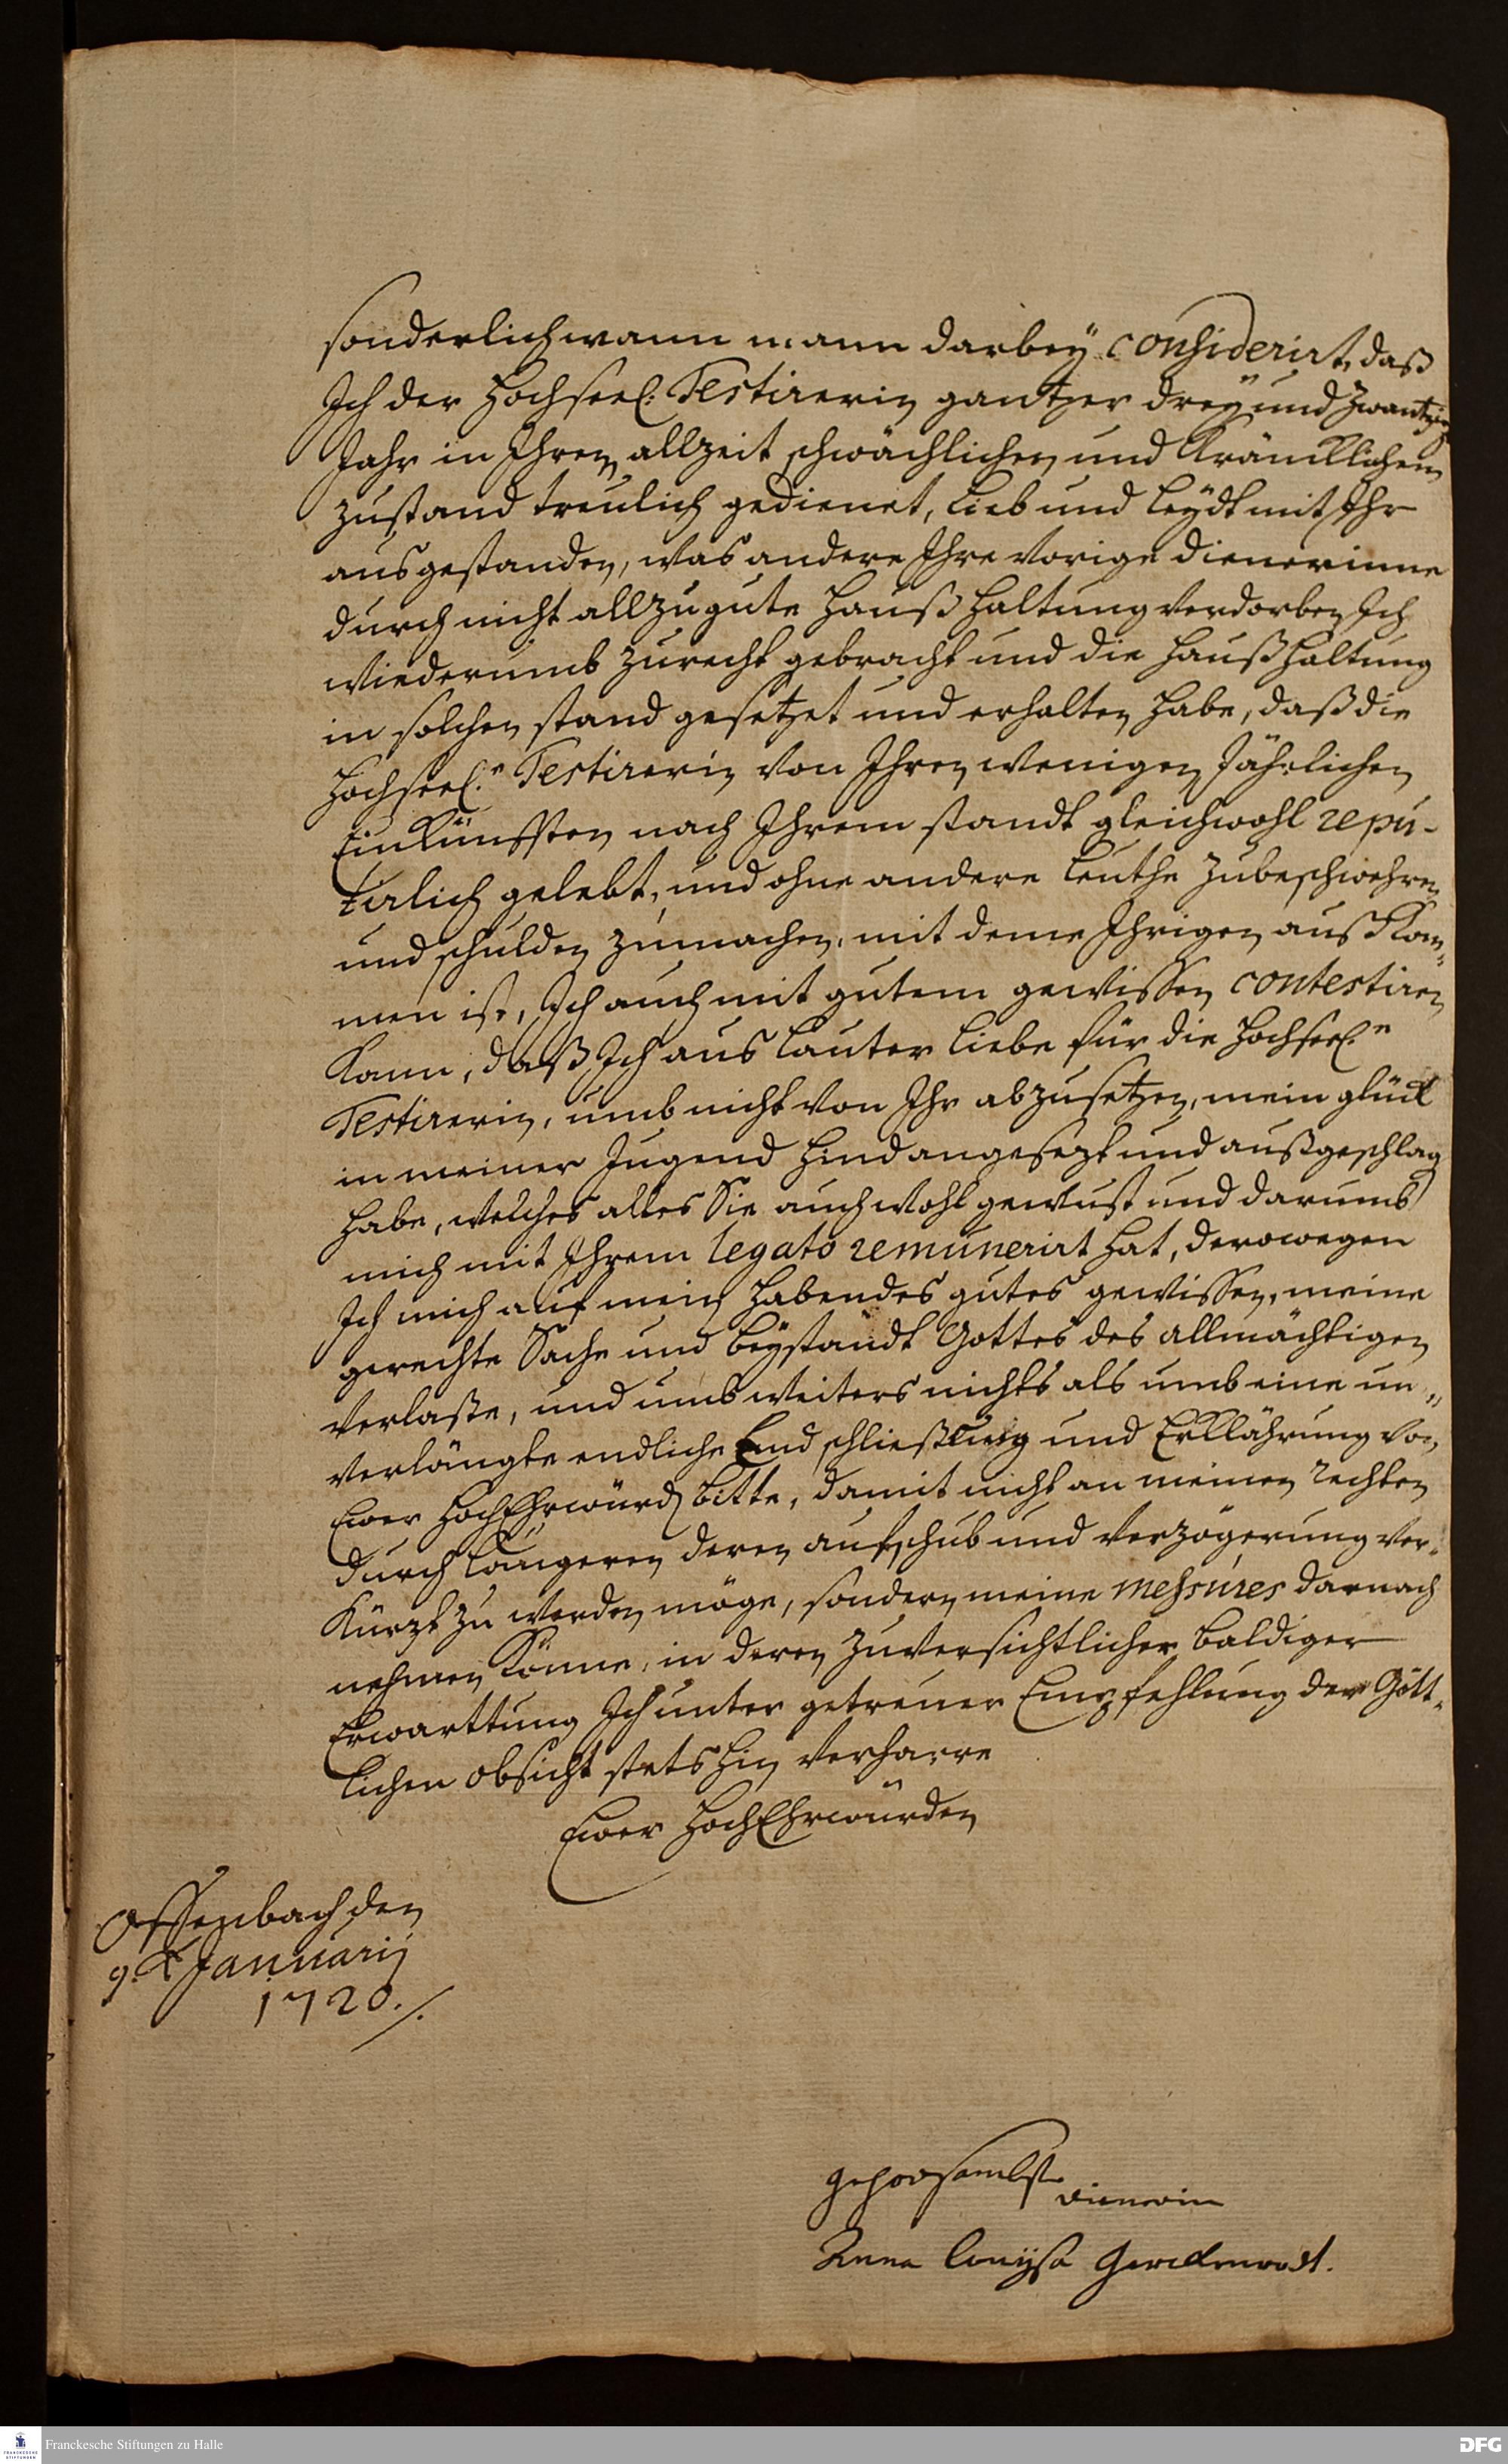 sonderlich wann mann darbeÿ considerirt, daß
Ich der Hochseel: Testirerin gantzer dreÿ und zwantzig
Jahr in Ihren allzeit schwächlichen und Kräncklichem
zustand treulich gedienet, Lieb und Leÿdt mit Ihr
ausgestanden, was andere Ihre Vorige dienerinne
durch nicht allzugute Haußhaltung verdorben Ich
wiederumb zurecht gebracht und die Haußhaltung
in solchen stand gesetzet und erhalten habe, daß die
Hochseel:e Testirerin von Ihren wenigen Jährlichen
Einkünfften nach Ihrem standt gleichwohl repu-
tirlich gelebt, und ohne andere Leuthe zubeschwehren
und schulden zumachen, mit deme Ihrigen auß Kom„
men ist, Ich auch mit gutem gewissen contestiren
Kann, daß Ich aus lauter Liebe für die Hochseel:e
Testirerin, umb nicht von Ihr abzusetzen, mein glück
in meiner Jugend hindangesezt und außgeschlag
habe, welches alles Sie auch wohl gewust und darumb
mich mit Ihrem legato remunerirt hat, derowegen
Ich mich auf mein habendes gutes gewissen, meine
gerechte Sache und beÿstandt Gottes des allmächtigen
verlaße, und umb weiters nichts als umb eine un„
verlängte endliche Endschließung und Erklährung von
Ewer HochEhrwürd bitte, damit nicht an meinen rechten
durch längeren deren aufschub und verzögerung ver„
Kürzt zu werden möge, sondern meine messures darnach
nehmen Könne, in deren zuversichtlicher baldiger
Erwarttung Ich unter getreuer Empfehlung der Gött„
lichen obsicht stets hin verharre
Ewer HochEhrwürden
Offenbach den
9.t Januarij
1720./.
gehorsambste
dienerin
Anna Louÿsa